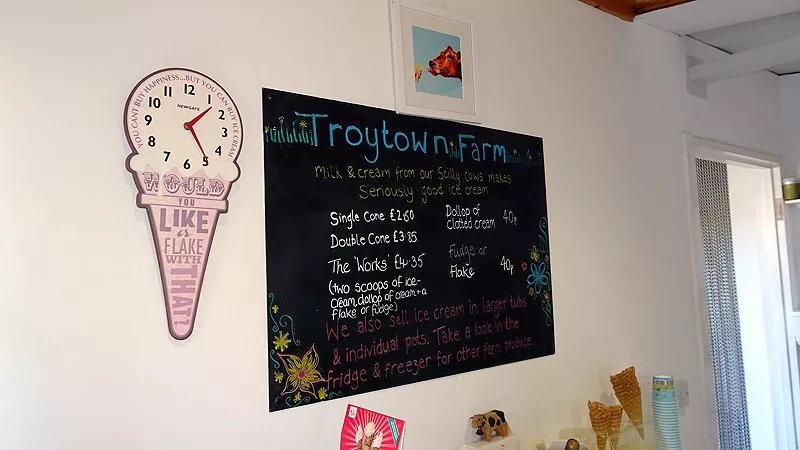 YOU CAN'T BUY HAPPINESS...BUT YOU CAN BUY ICE CREAM
12
1
2
3
4
5
6
7
8
9
10
11
NEWGATE
WOULD
YOU
LIKE
a
FLAKE
WITH
THAT?
Troytown Farm
Milk & cream from our Scilly cows makes
Seriously good ice cream
Single Cone £2.60
Double Cone £3.85
The 'Works' £4.35
(two scoops of ice-
cream, dollop of cream + a
flake or fudge)
Dollop of
clotted cream 40p
Fudge or
flake 40p
We also sell ice cream in larger tubs
& individual pots. Take a look in the
fridge & freezer for other farm produce.